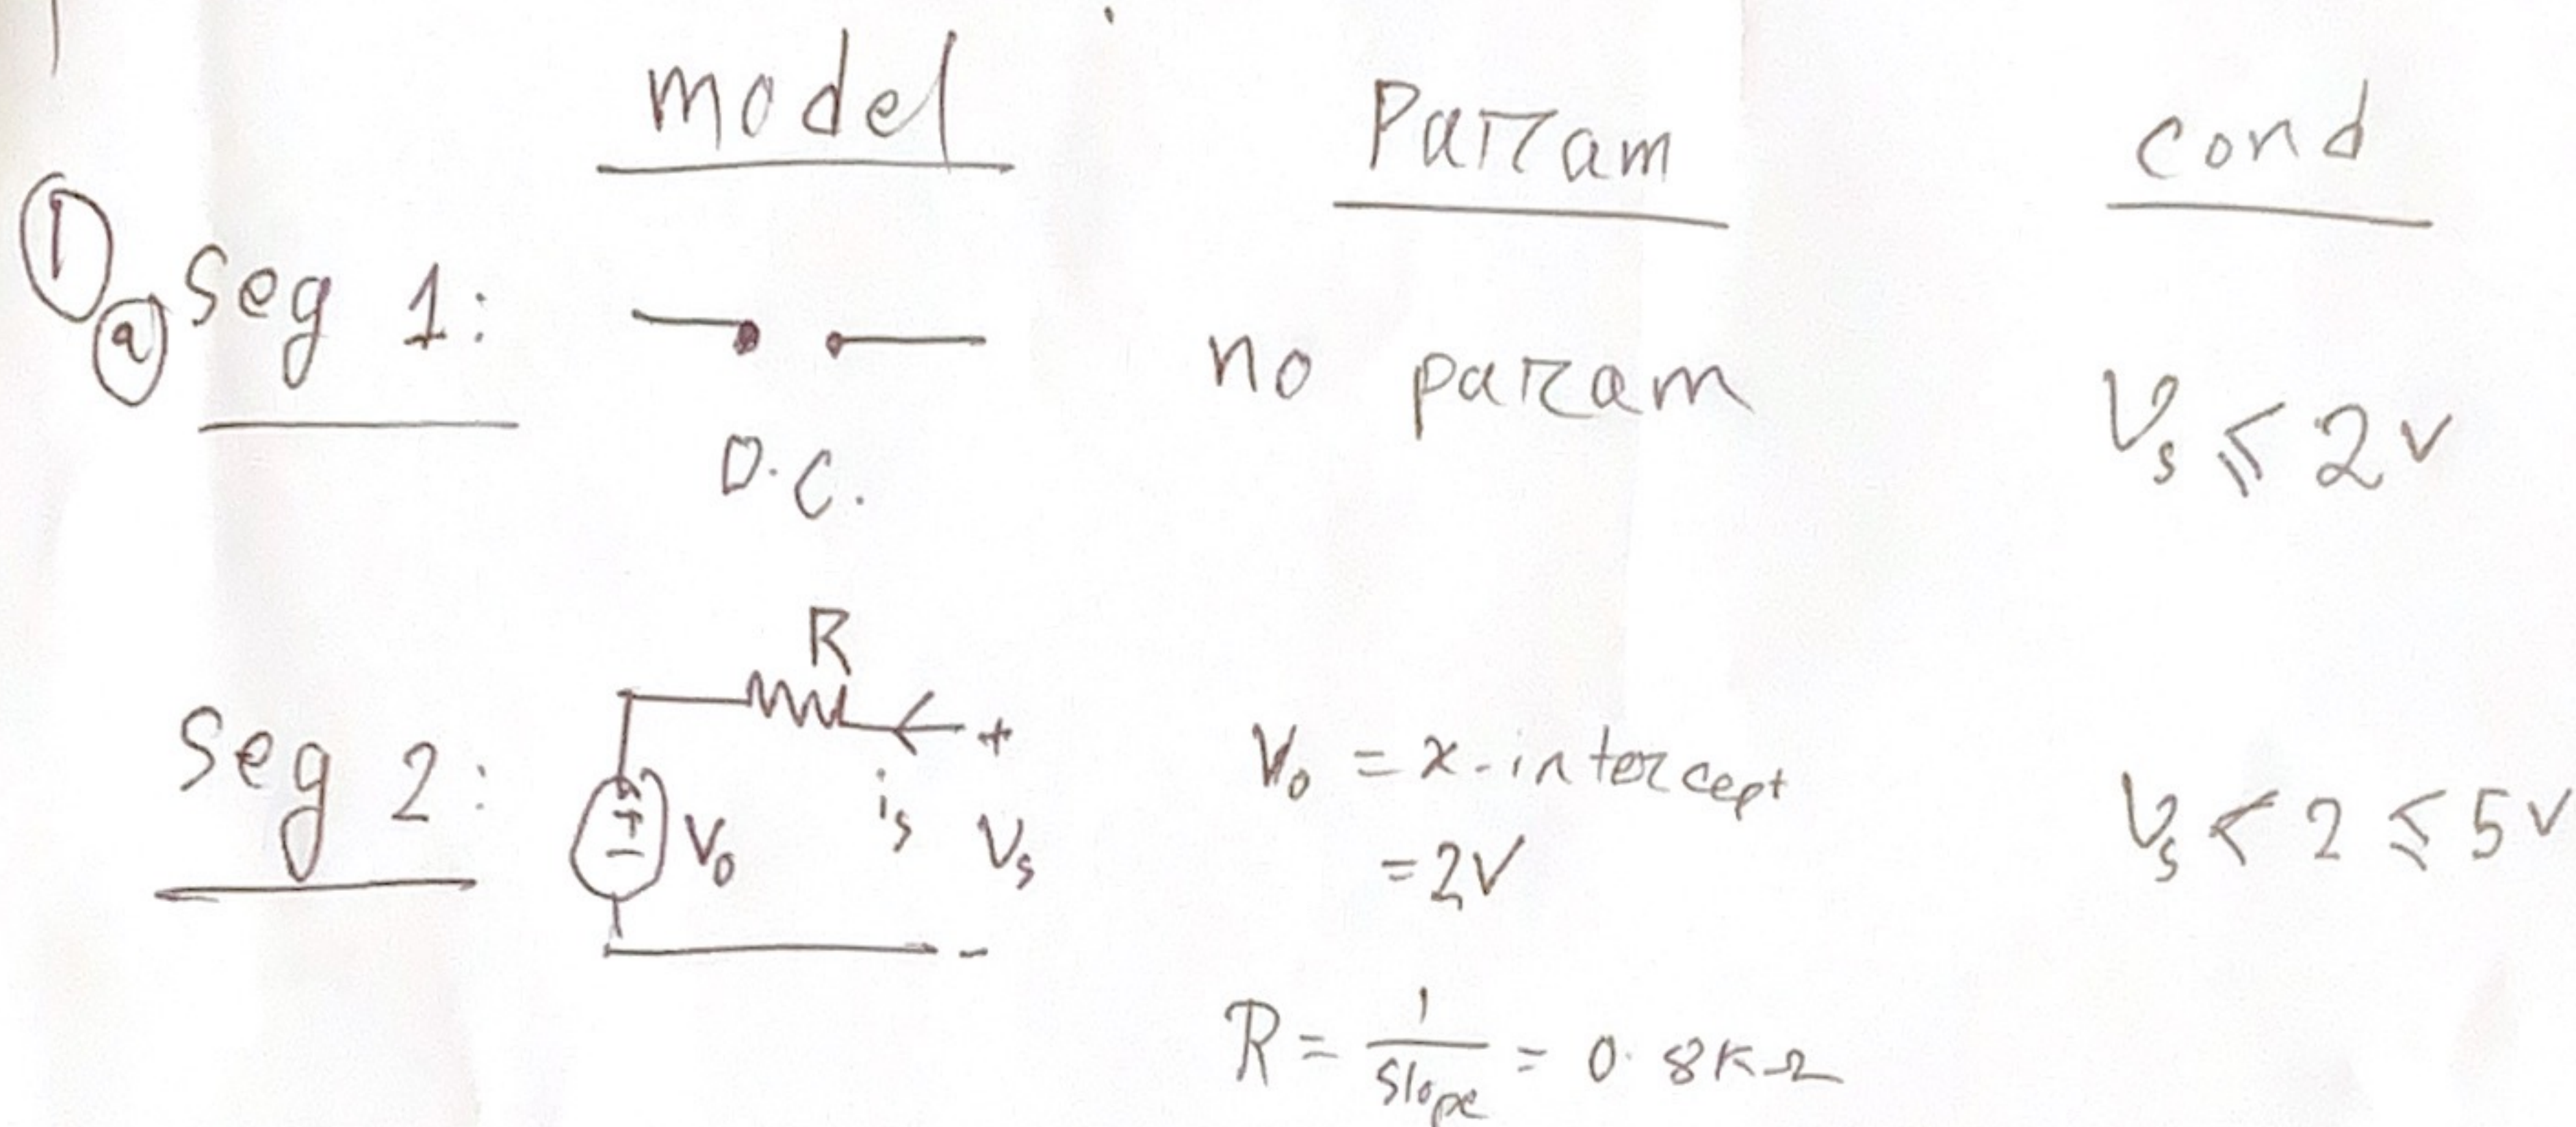 model Param cond
① ⓐ Seg 1: no param Vs ≤ 2v
O.C.
R
+
Seg 2: V₀ is Vs V₀ = x-intercept Vs < 2 ≤ 5v
= 2V
-
R = 1/Slope = 0.8KΩ